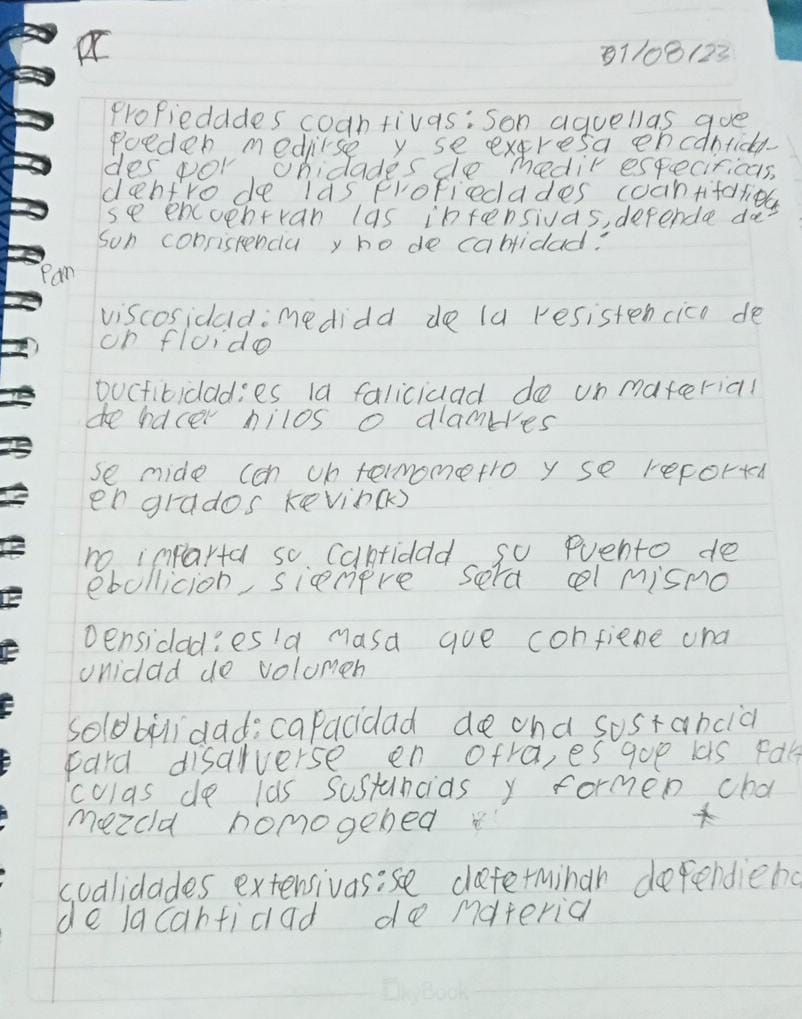 01/08/23
Propiedades coantivas: Son aquellas que
pueden medirse y se expresa en cantida-
des por unidades de medir especificas,
dentro de las propiedades coantitativas
se encuentran las intensivas, depende de
sun consistencia y no de cantidad.
Pam
viscosidad: medida de la resistencica de
un fluido
Ductibidad: es la faliciciad de un material
de hacer hilos o alambres
se mide con un termometro y se reporta
en grados Kevin(k)
no imparta su cantidad su Puento de
ebullicion, siempre sera el mismo
Densidad: es la masa que contiene una
unidad de volumen
solobilidad: capacidad de una sustancia
para disalverse en otra, es que las Par
culas de las sustancias y formen una
mezcla homogenea
cualidades extensivas: se determinan dependienc
de la cantidad de materia
DkyBook